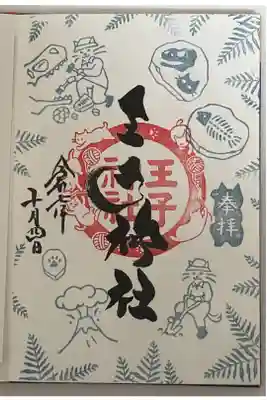 奉拝
王子神社
王子
神社
令和七年
十月四日